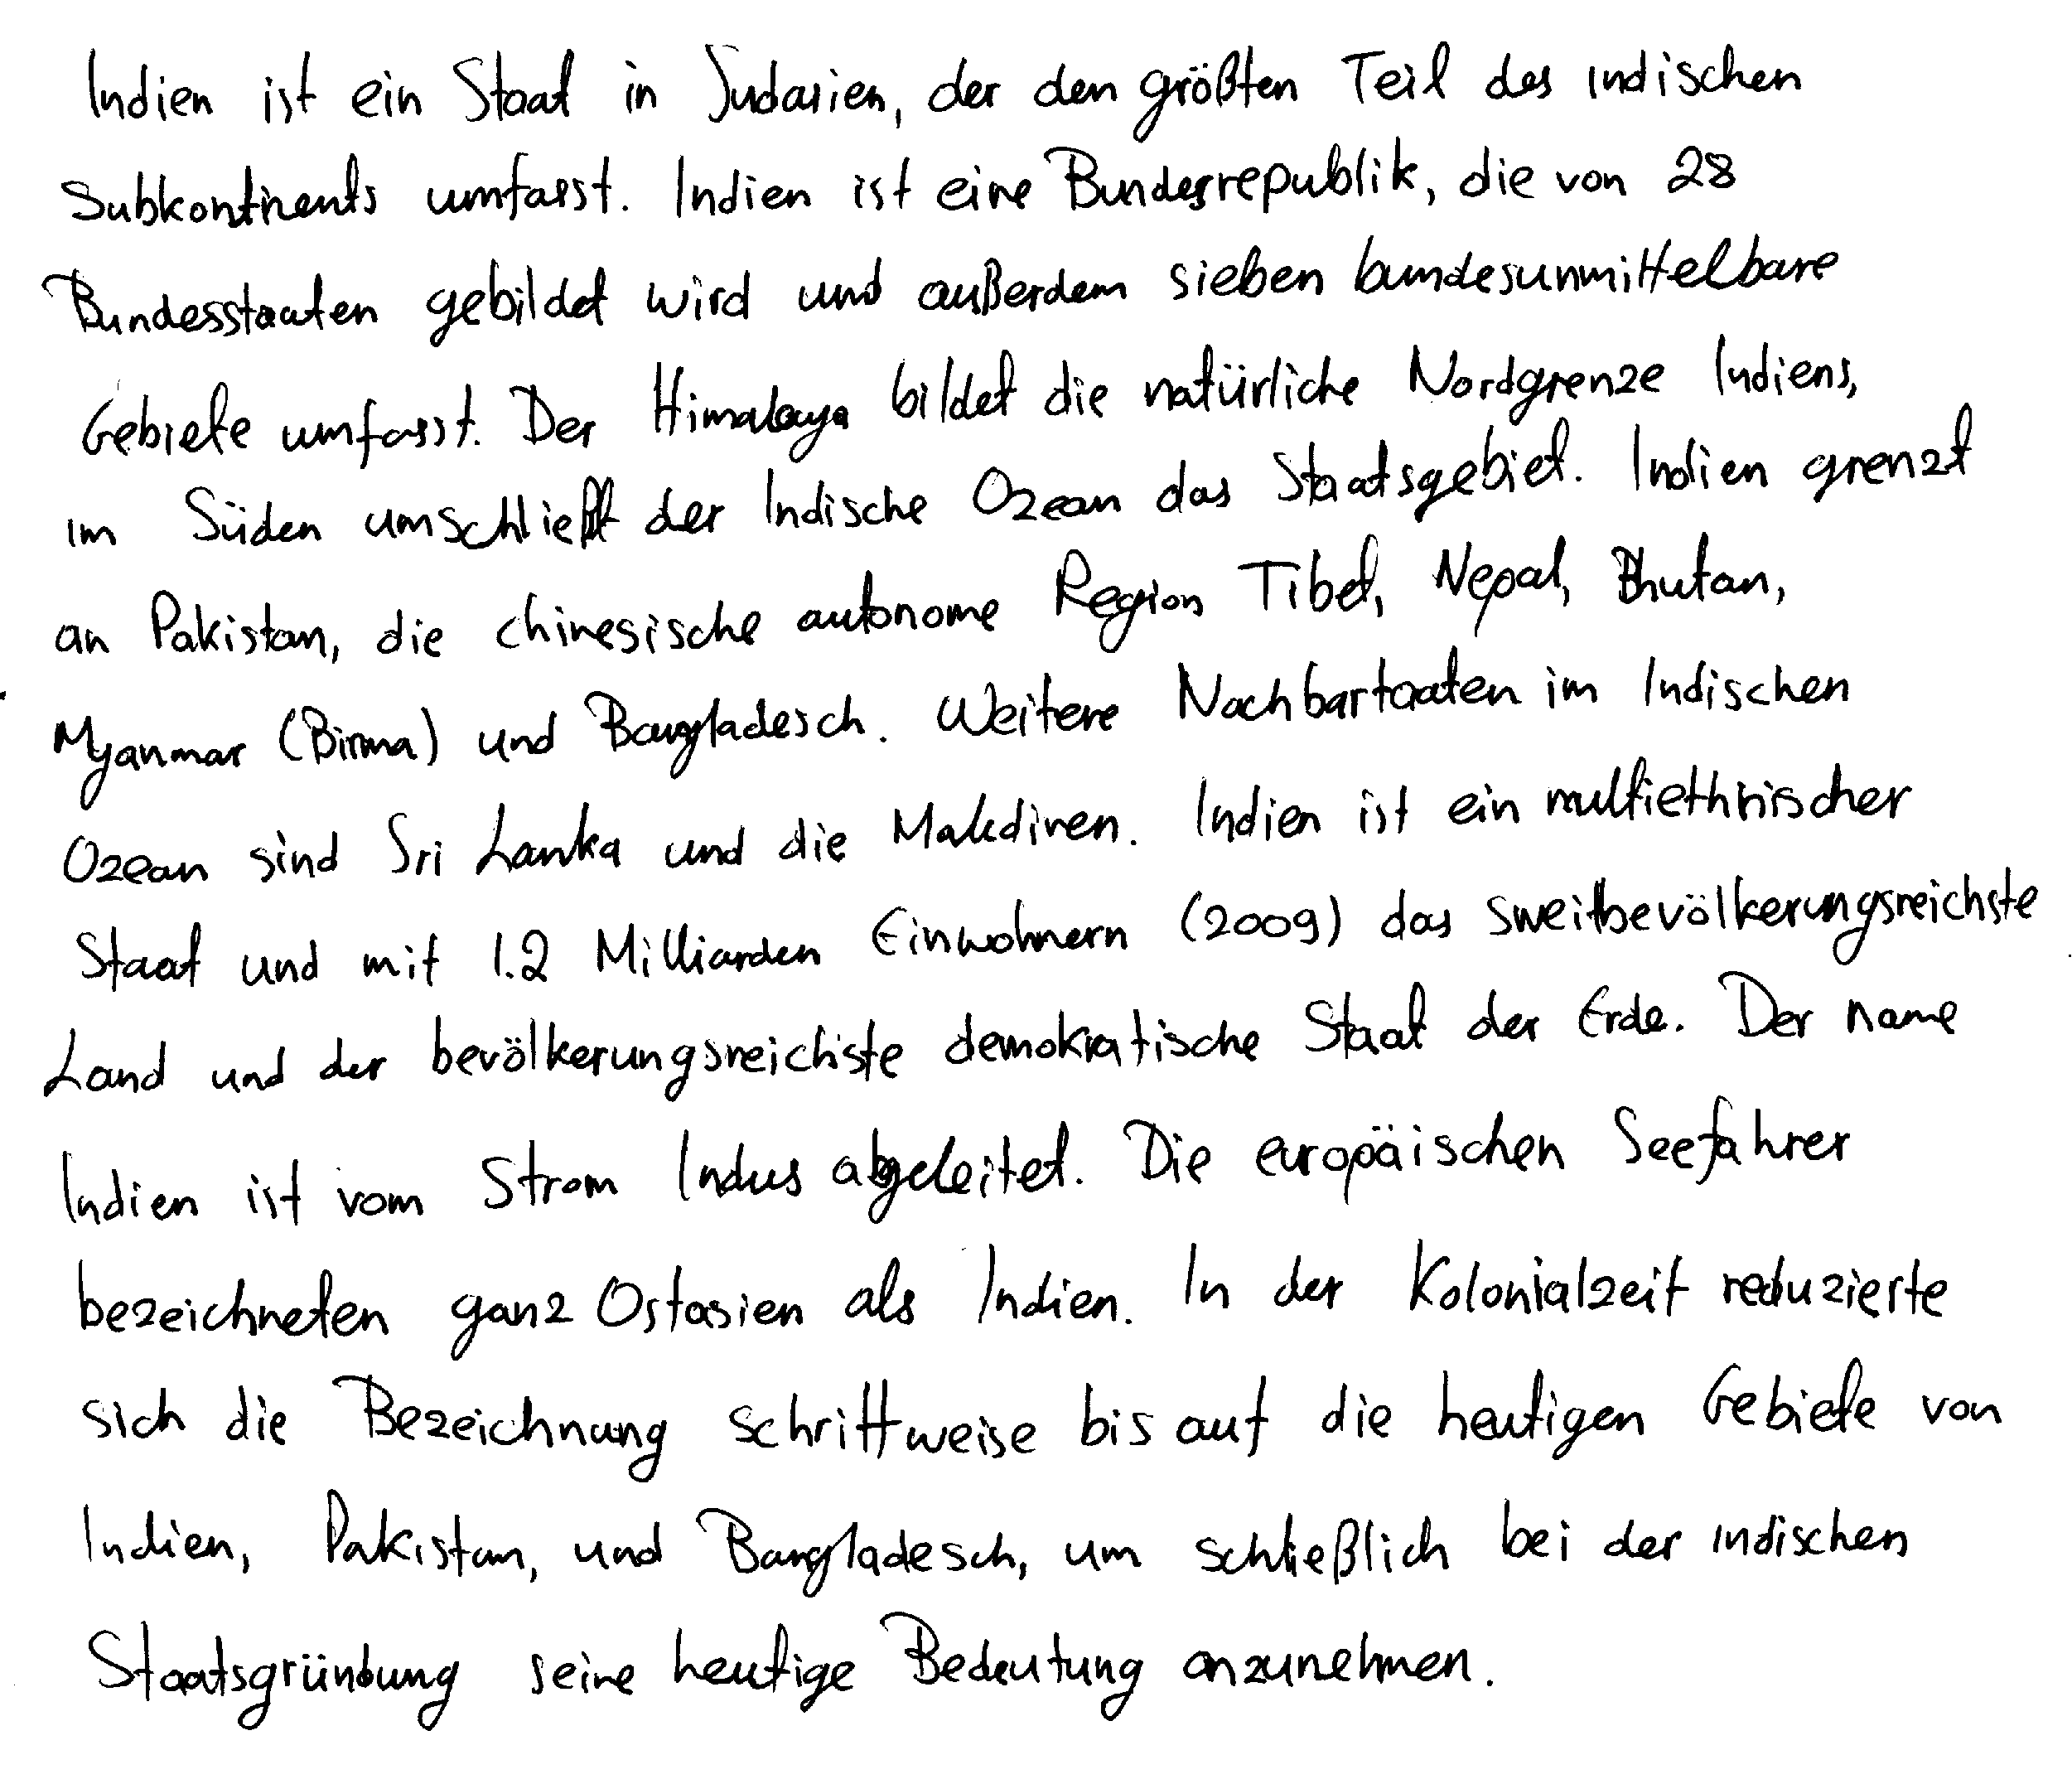 Indien ist ein Staat in Südasien, der den größten Teil des indischen
Subkontinents umfasst. Indien ist eine Bundesrepublik, die von 28
Bundesstaaten gebildet wird und außerdem sieben bundesunmittelbare
Gebiete umfasst. Der Himalaya bildet die natürliche Nordgrenze Indiens,
im Süden umschließt der Indische Ozean das Staatsgebiet. Indien grenzt
an Pakistan, die chinesische autonome Region Tibet, Nepal, Bhutan,
Myanmar (Birma) und Bangladesch. Weitere Nachbartaaten im Indischen
Ozean sind Sri Lanka und die Malediven. Indien ist ein multiethnischer
Staat und mit 1.2 Milliarden Einwohnern (2009) das sweitbevölkerungsreichste
Land und der bevölkerungsreichste demokratische Staat der Erde. Der name
Indien ist vom Strom Indus abgeleitet. Die europäischen Seefahrer
bezeichneten ganz Ostasien als Indien. In der Kolonialzeit reduzierte
sich die Bezeichnung schrittweise bis auf die heutigen Gebiete von
Indien, Pakistan, und Bangladesch, um schließlich bei der indischen
Staatsgründung seine heutige Bedeutung anzunehmen.